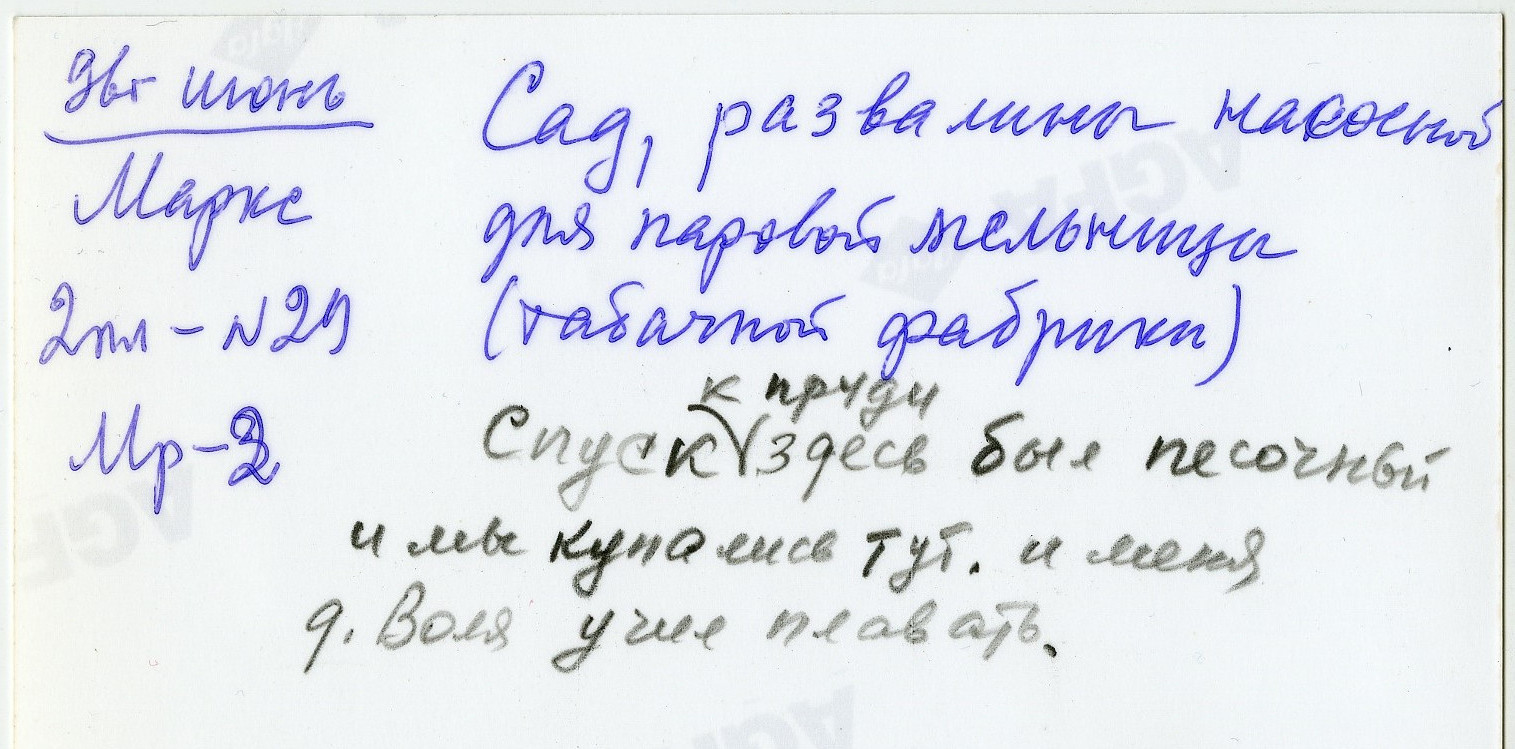 9вг июнь
Маркс
2пл - N29
Мр-2
Сад, развалины насосной
для паровой мельницы
(табачной фабрики)
к пруди
Спуск (здесь был песочный
и мы купались тут. и меня
д. Воля учил плавать.
AGFA
AGFA
AGFA